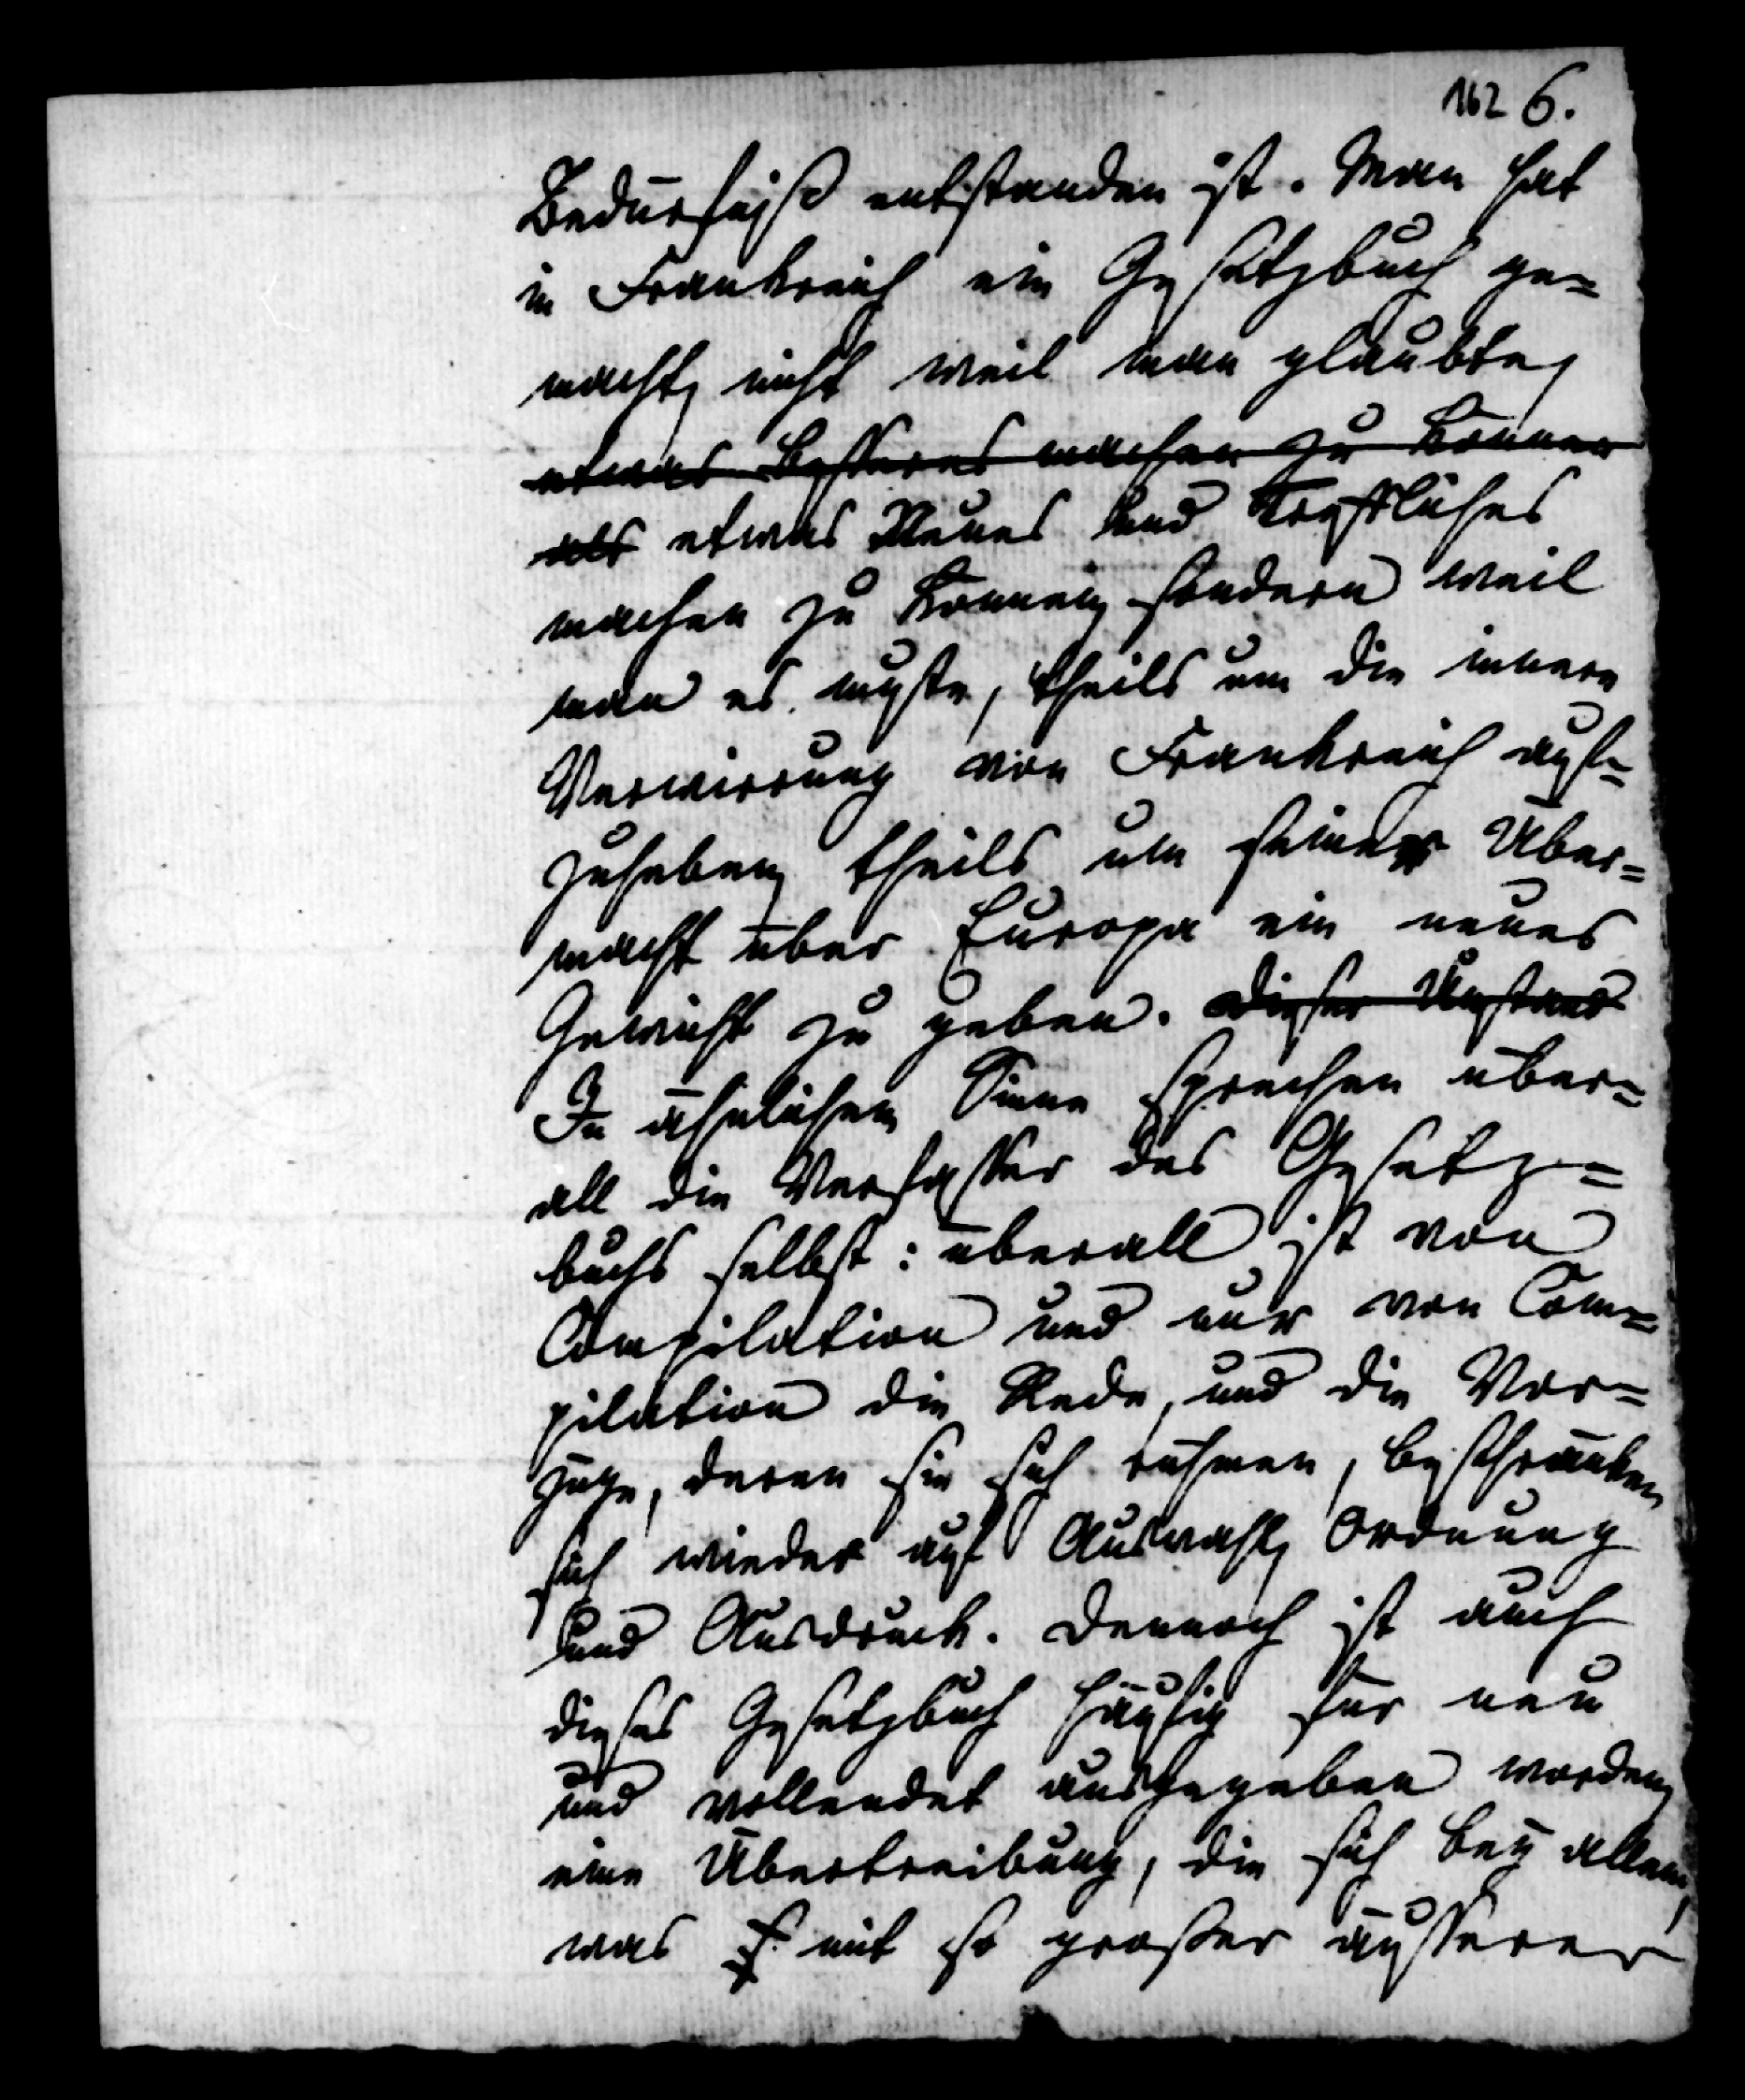 162 6.
Bedürfniß entstanden ist. Man hat
in Frankreich ein Gesetzbuch ge=
macht, nicht weil man glaubte,
etwas Besseres machen zu können
als etwas Neues und Treffliches
machen zu können, sondern weil
man es mußte, theils um die innere
Verwirrung von Frankreich auf=
zuheben, theils um seiner Über=
macht über Europa ein neues
Gewicht zu geben. Dieser Umstand
In ähnlichem Sinne sprechen über=
all die Verfasser des Gesetz=
buchs selbst: überall ist von
Compilation und nur von Com=
pilation die Rede, und die Vor=
züge, deren sie sich rühmen, beschränken
sich wieder auf Auswahl, Ordnung
und Ausdruck. Dennoch ist auch
dieses Gesetzbuch häufig für neu
und vollendet ausgegeben worden,
eine Übertreibung, die sich bey allem,
was mit so großer äusserer